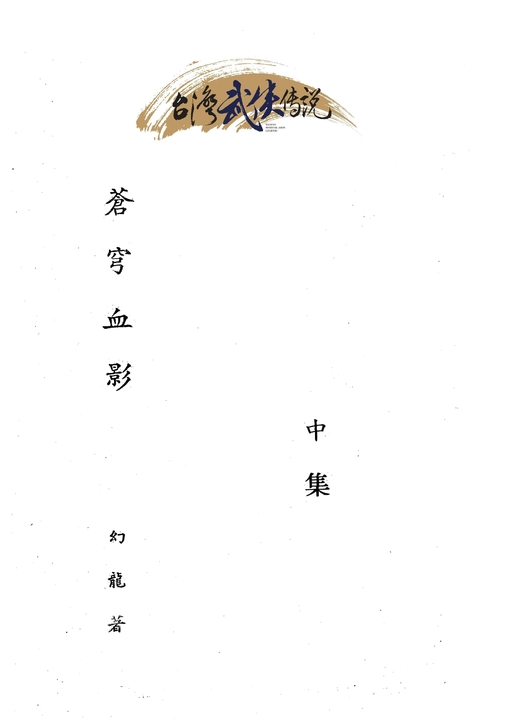 台灣武俠傳説
蒼穹血影
中集
幻龍著